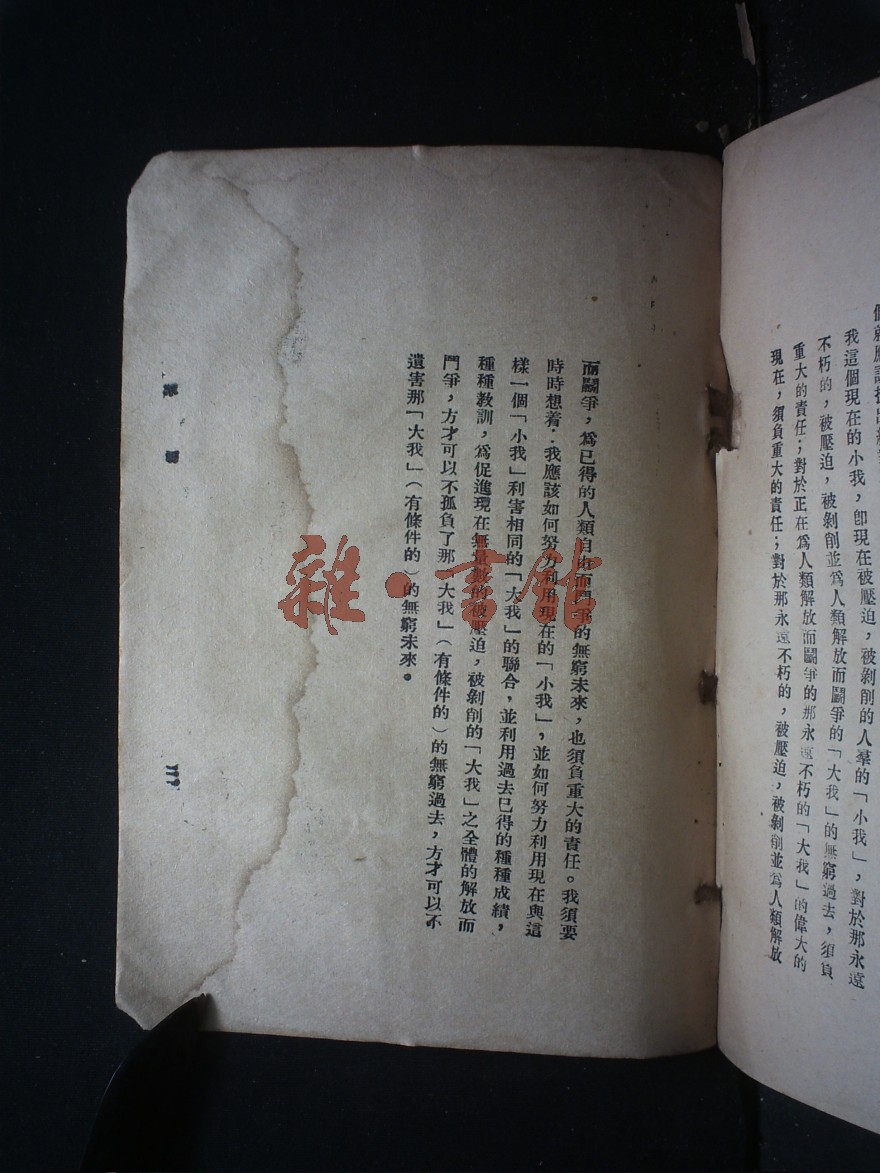 我這個現在的小我，卽現在被壓迫，被剝削的人羣的「小我」，對於那永遠
不朽的，被壓迫，被剝削並爲人類解放而鬬爭的「大我」的無窮過去，須負
重大的責任；對於正在爲人類解放而鬬爭的那永遠不朽的「大我」的偉大的
現在，須負重大的責任；對於那永遠不朽的，被壓迫，被剝削並爲人類解放
而鬬爭，爲已得的人類自由而鬥爭的無窮未來，也須負重大的責任。我須要
時時想着：我應該如何努力利用現在的「小我」，並如何努力利用現在與這
樣一個「小我」利害相同的「大我」的聯合，並利用過去已得的種種成績，
種種教訓，爲促進現在無量數的被壓迫，被剝削的「大我」之全體的解放而
鬥爭，方才可以不孤負了那「大我」（有條件的）的無窮過去，方才可以不
遺害那「大我」（有條件的）的無窮未來。
雜·書館